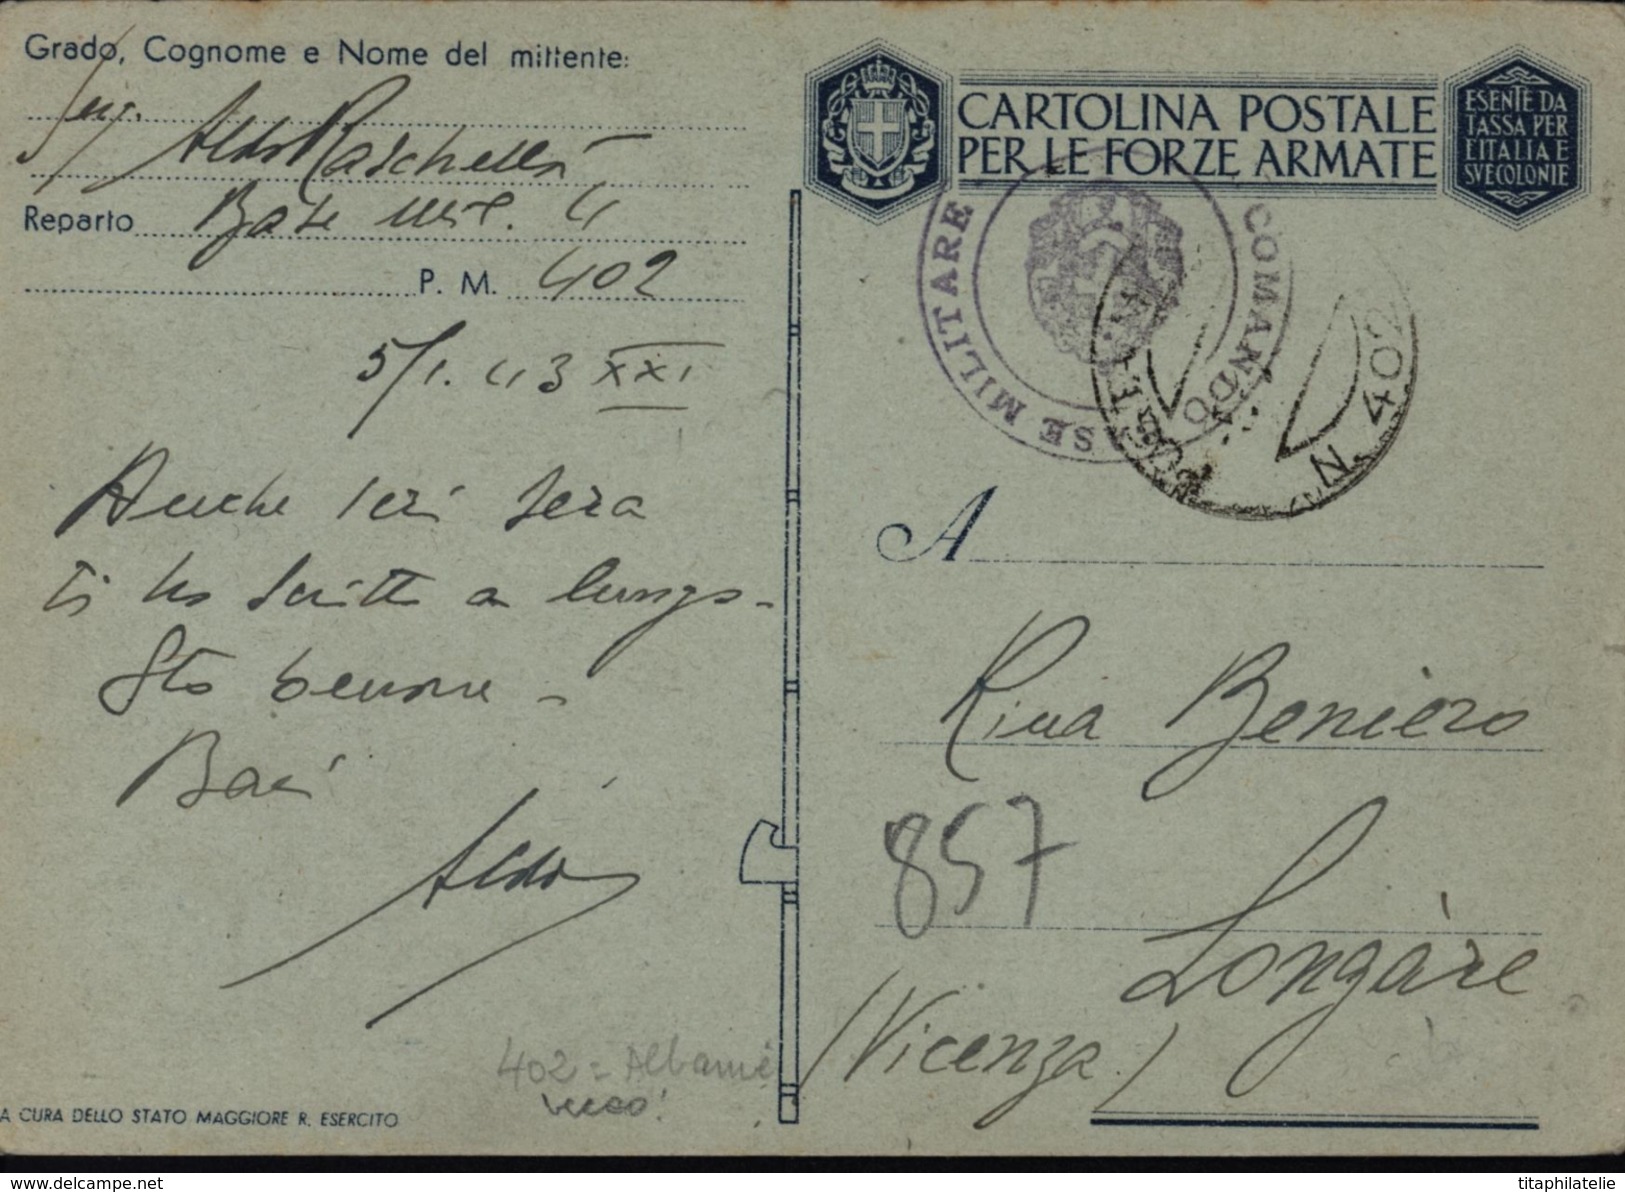 Grado, Cognome e Nome del mittente:
Serg.
Aldo Raschellà
Reparto Base mil. 4
P. M. 402
5/1. 43 XXI
Anche ieri sera
ti ho scritto a lungo -
Sto benone -
Baci
Aldo
402 = Albanie
A CURA DELLO STATO MAGGIORE R. ESERCITO
CARTOLINA POSTALE
PER LE FORZE ARMATE
ESENTE DA
TASSA PER
L'ITALIA E
SVE COLONIE
COMANDO BASE MILITARE
N. 402
A
Rina Beniero
857
Longàre
(Vicenza)
www.delcampe.net
titaphilatelie